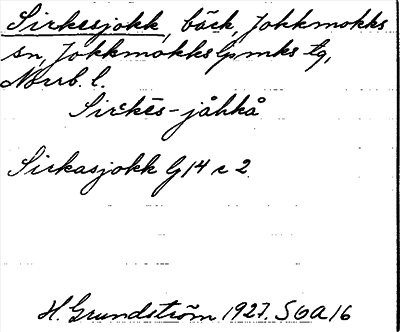 Sirkesjokk, bäck, Jokkmokks
sn, Jokkmokks lpmks tg,
Norrb. l.
Sirkēs-jåhkå
Sirkasjokk G 14 c 2
H. Grundström 1927. SOA 16